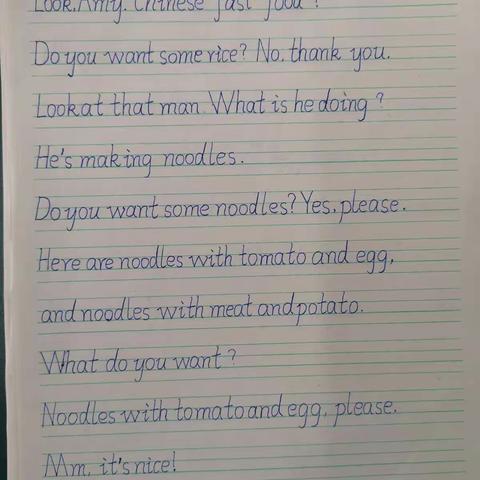 Look, Amy. Chinese fast food!
Do you want some rice? No, thank you.
Look at that man. What is he doing?
He's making noodles.
Do you want some noodles? Yes, please.
Here are noodles with tomato and egg,
and noodles with meat and potato.
What do you want?
Noodles with tomato and egg, please.
Mm, it's nice!